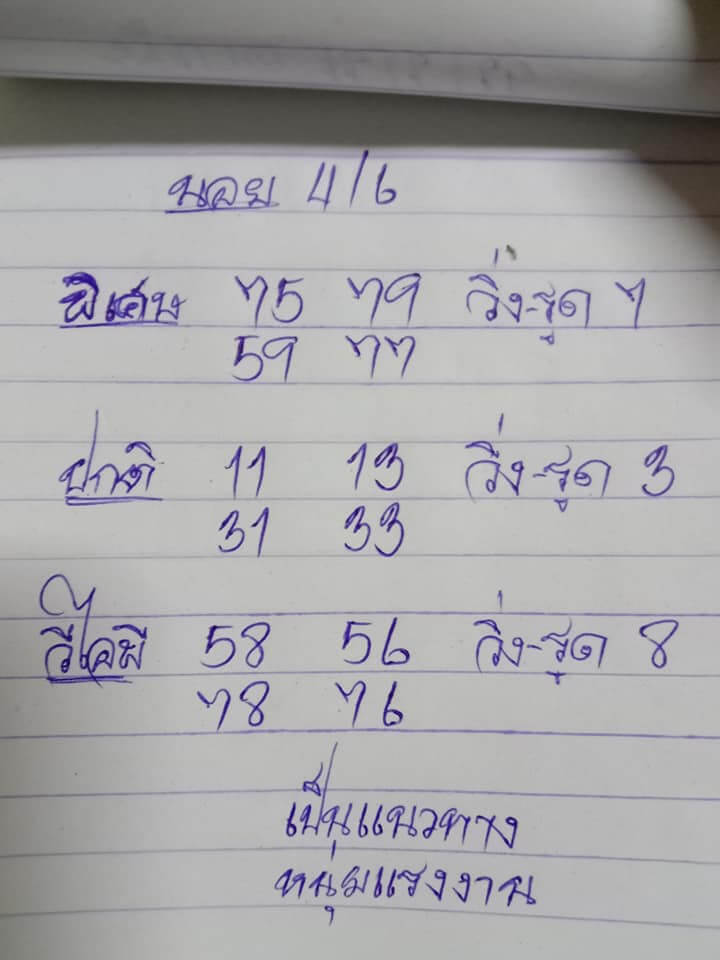 นอย 4/6
พิเศษ 75 79 วิ่ง-รูด 7
59 77
ปกติ 11 13 วิ่ง-รูด 3
31 33
วีไอพี 58 56 วิ่ง-รูด 8
78 76
เป็นแนวทาง
หนุ่มแรงงาน